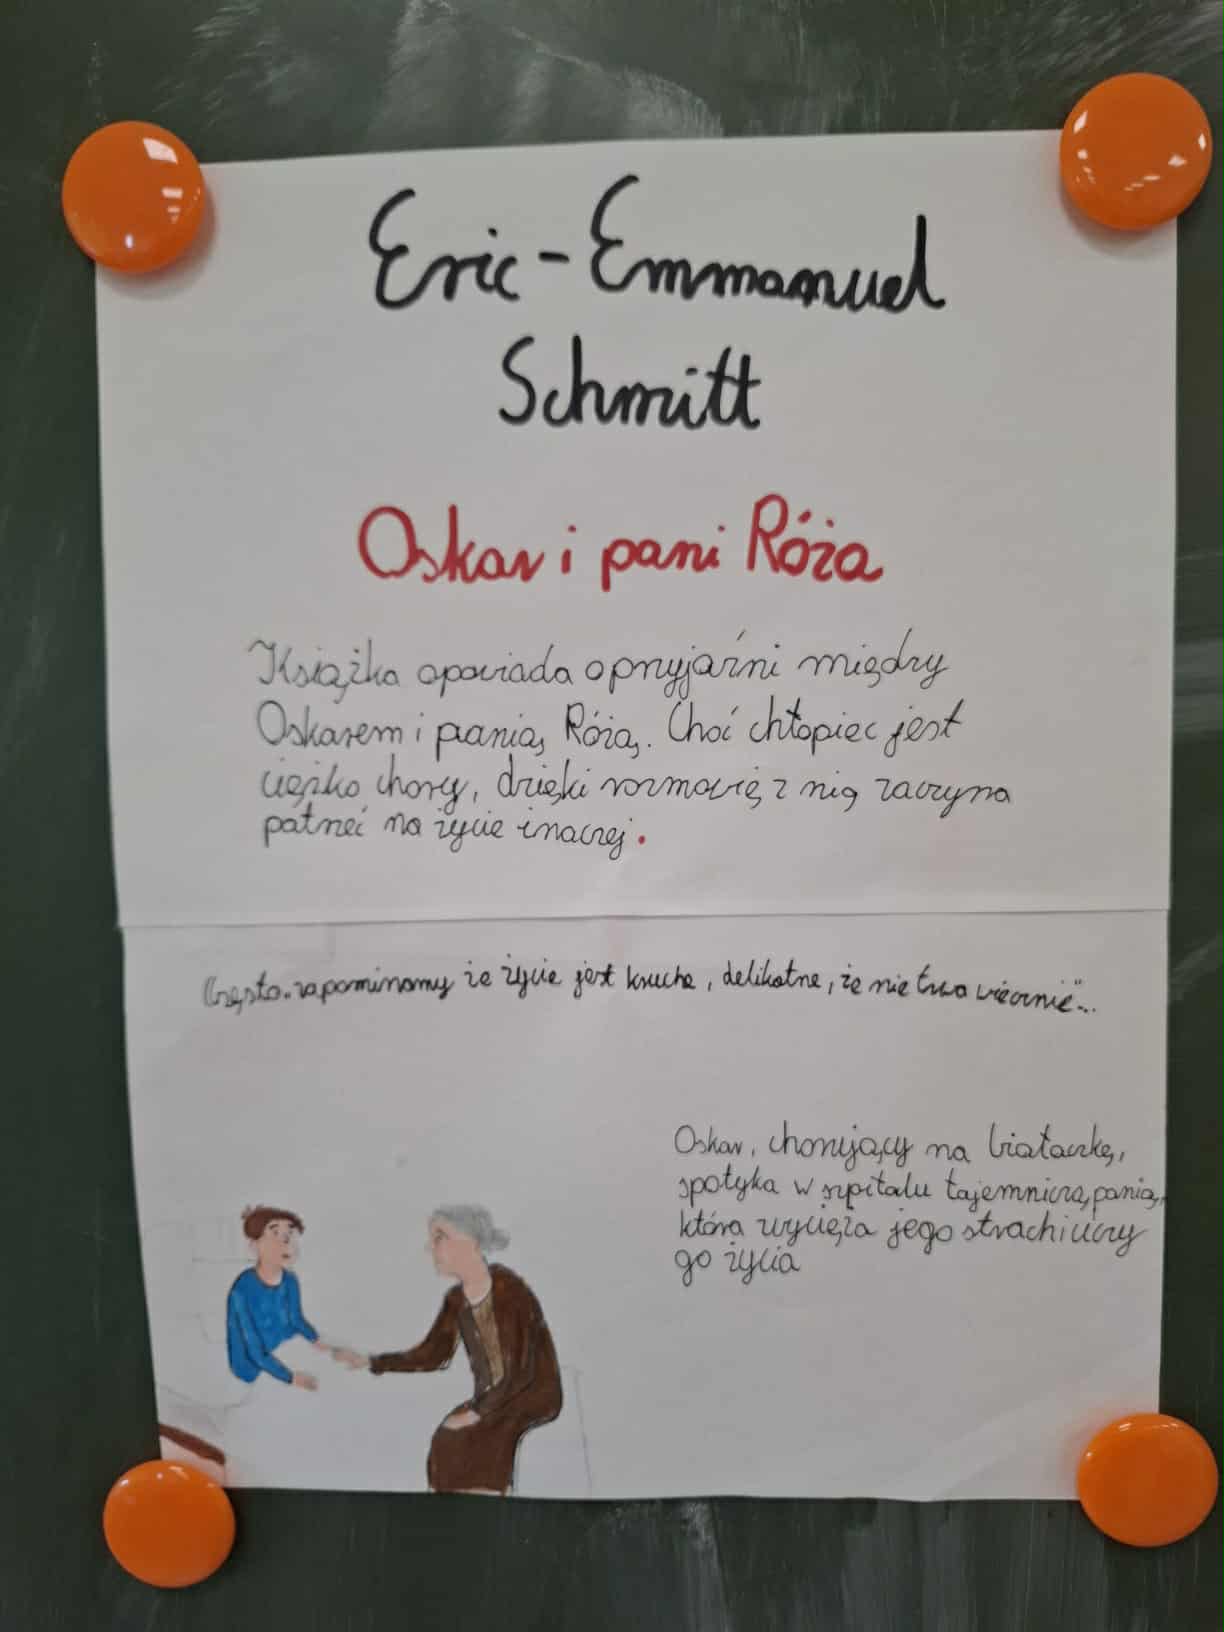 Eric-Emmanuel
Schmitt
Oskar i pani Róża
Książka opowiada o przyjaźni między
Oskarem i panią Różą. Choć chłopiec jest
ciężko chory, dzięki rozmowię z nią zaczyna
patrzeć na życie inaczej.
Często zapominamy że życie jest kruche, delikatne, że nie trwa wiecznie"...
Oskar, chorujący na białaczkę,
spotyka w szpitalu tajemniczą panią,
która wycięża jego strach i uczy
go życia